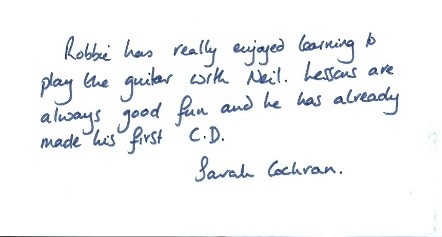 Robbie has really enjoyed learning to
play the guitar with Neil. Lessons are
always good fun and he has already
made his first C.D.
Sarah Cochran.